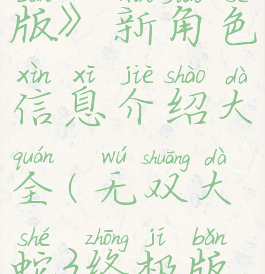 版》新角色
xìn xī jiè shào dà
信息介绍大
quán wú shuāng dà
全(无双大
shé zhōng jí bǎn
蛇3终极版